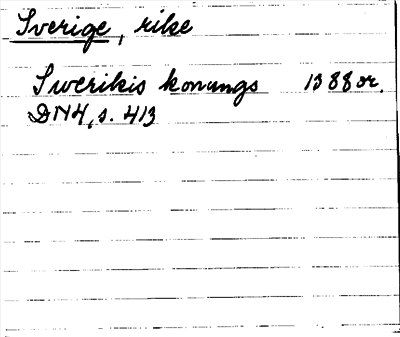 Sverige, rike
Swerikis konungs 1388 or.
DN4, s. 413